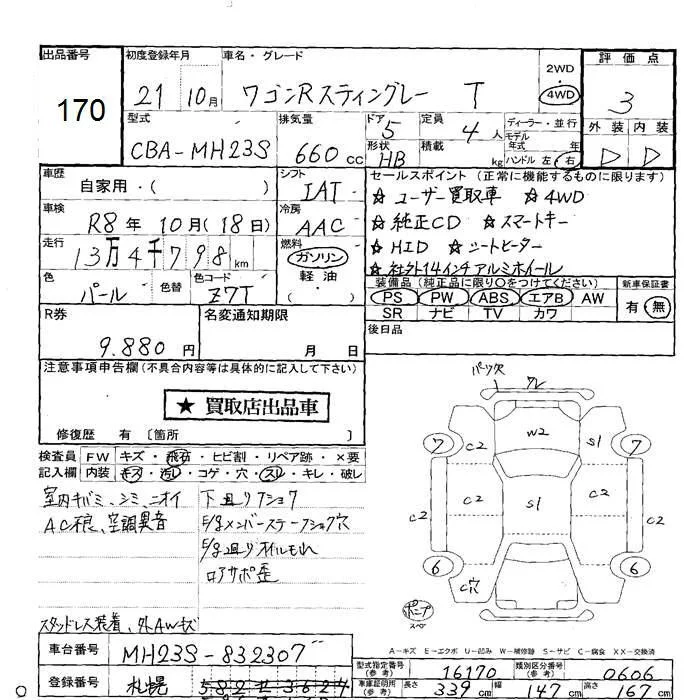 出品番号 初度登録年月 車名・グレード 2WD 評価点
170 21 10月 ワゴンRスティングレー T 4WD 3
型式 排気量 ドア 5 定員 4人 ディーラー・並行 外装 内装
CBA-MH23S 660cc 形状 HB 積載 kg モデル年式 年 D D
ハンドル 左 右
車歴 自家用・( ) シフト IAT セールスポイント (正常に機能するものに限ります)
車検 R8年 10月(18日) 冷房 AAC ☆ユーザー買取車 ☆4WD
☆純正CD ☆スマートキー
走行 13万4千798km 燃料 ガソリン ☆HID ☆シートヒーター
軽油 ☆社外14インチアルミホイール
色 パール 色替 色コード Z7T ( ・ ) 装備品 (純正品に限り○をつけてください) 新車保証書
PS PW ABS エアB AW 有・無
SR ナビ TV カワ
R券 9.880円 名変通知期限 月 日 後日品
注意事項申告欄(不具合内容等は具体的に記入して下さい)
★ 買取店出品車
修復歴 有 〔箇所 〕
検査員 FW キズ・飛石・ヒビ割・リペア跡・×要
記入欄 内装 キズ・汚レ・コゲ・穴・スレ・キレ・破レ
室内キバミ、シミ、ニオイ 下廻りフショク
AC不良、空調異音 F/gメンバーステーフショク穴
F/g廻りオイルもれ
ロアサポ歪
スタッドレス装着、外AWキズ
パーツ欠 フレ
7 C2 W2 S1 7
C2 C2 S1 C2 C2
6 C穴 6
ポニプ
スペア
A-キズ E-エクボ U-凹み W-補修跡 S-サビ C-腐食 XX-交換済
車台番号 MH23S-832307
型式指定番号(参考) 16170 類別区分番号(参考) 0606
登録番号 札幌
車庫証明用(参考) 長さ 339cm 幅 147cm 高さ 167cm